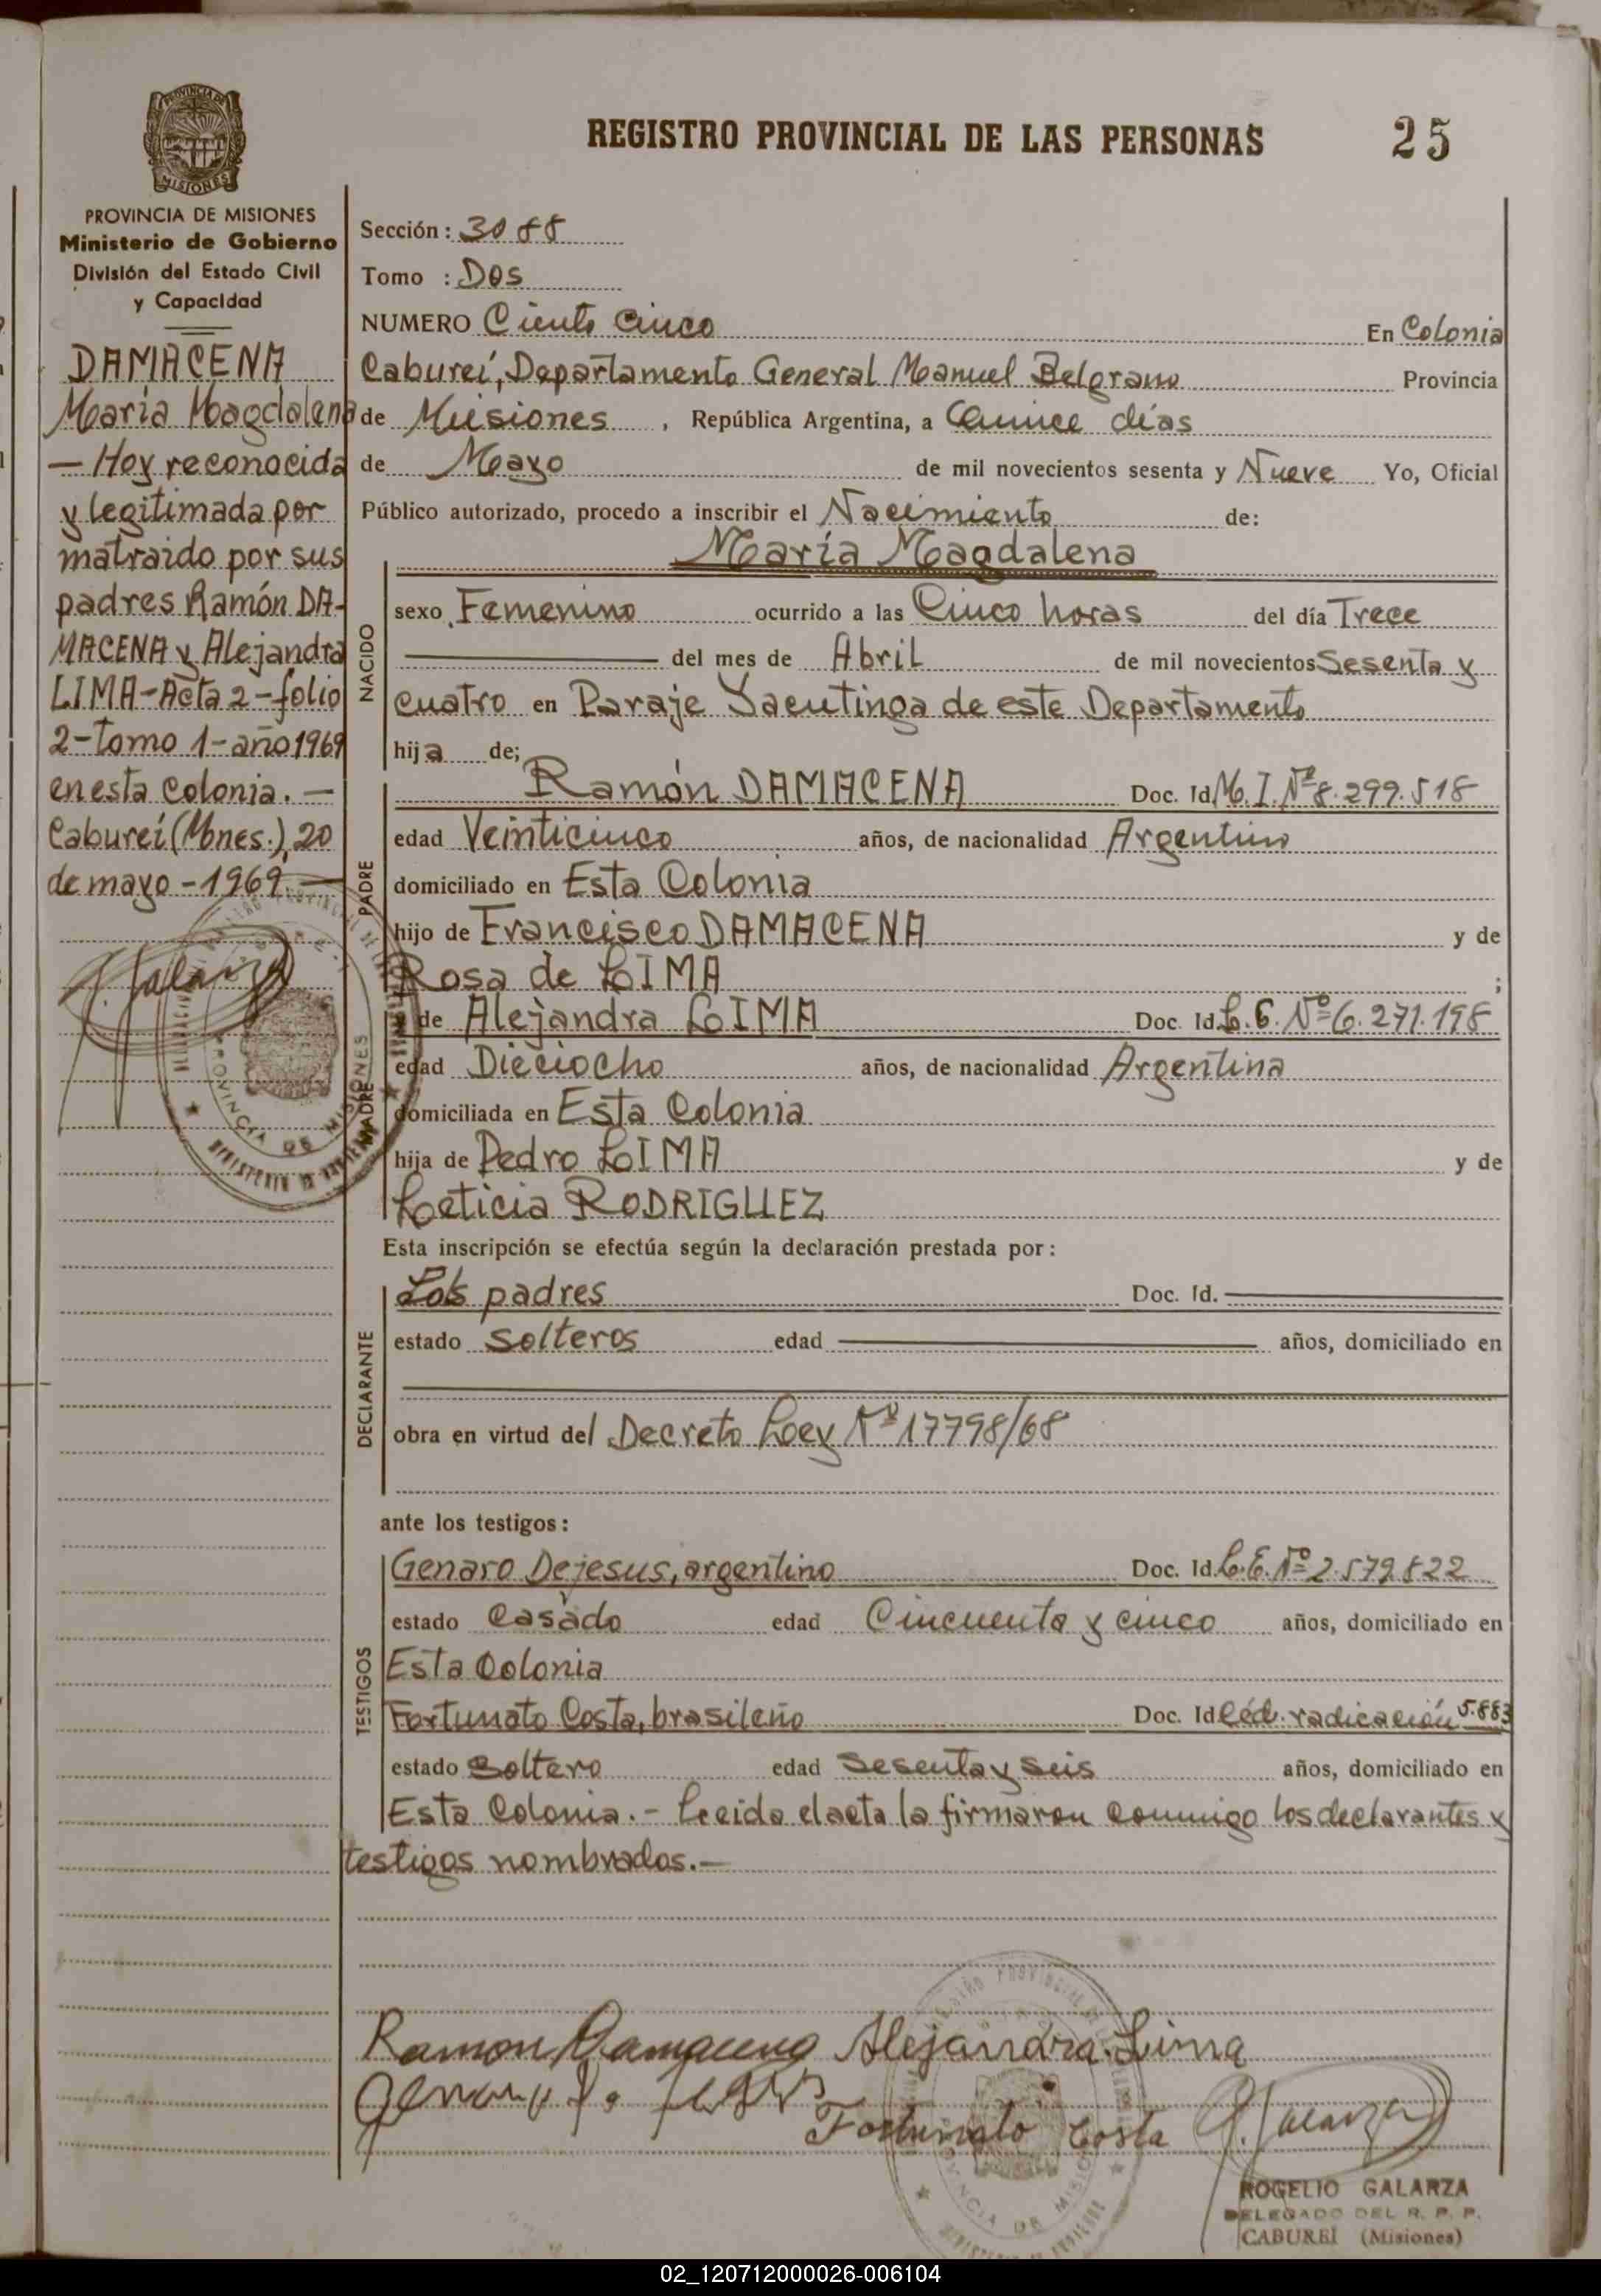 REGISTRO PROVINCIAL DE LAS PERSONAS 25
PROVINCIA DE MISIONES
PROVINCIA DE MISIONES
Ministerio de Gobierno
División del Estado Civil
y Capacidad
DAMACENA
María Magdalena
— Hoy reconocida
y legitimada por
matraido por sus
padres Ramón DA-
MACENA y Alejandra
LIMA-Acta 2-folio
2-Tomo 1-año 1969
en esta Colonia. —
Caburei (Mnes.), 20
de mayo - 1969. —
Sección: 3088
Tomo : Dos
NUMERO Ciento Cinco En Colonia
Caburei, Departamento General Manuel Belgrano Provincia
de Misiones, República Argentina, a Quince días
de Mayo de mil novecientos sesenta y Nueve Yo, Oficial
Público autorizado, procedo a inscribir el Nacimiento de:
María Magdalena
NACIDO
sexo Femenino ocurrido a las Cinco horas del día Trece
——— del mes de Abril de mil novecientos Sesenta y
cuatro en Paraje Yacutinga de este Departamento
hija de;
PADRE
Ramón DAMACENA Doc. Id. M. I. Nº 8.299.518
edad Veinticinco años, de nacionalidad Argentino
domiciliado en Esta Colonia
hijo de Francisco DAMACENA y de
Rosa de LIMA ;
MADRE
de Alejandra LIMA Doc. Id. L. C. Nº 6.271.198
edad Dieciocho años, de nacionalidad Argentina
domiciliada en Esta Colonia
hija de Pedro LIMA y de
Leticia RODRIGUEZ
Esta inscripción se efectúa según la declaración prestada por:
DECLARANTE
Los padres Doc. Id. ———
estado solteros edad ——— años, domiciliado en
obra en virtud del Decreto Ley Nº 17798/68
ante los testigos:
TESTIGOS
Genaro Dejesus, argentino Doc. Id. L. E. Nº 2.579.822
estado Casado edad Cincuenta y cinco años, domiciliado en
Esta Colonia
Fortunato Costa, brasileño Doc. Id Céd. radicación 5.883
estado Soltero edad Sesenta y seis años, domiciliado en
Esta Colonia. - Leída el acta la firmaron conmigo los declarantes y
testigos nombrados. —
Ramon Damacena Alejandra Lima
Fortunato Costa
R. Galarza
ROGELIO GALARZA
DELEGADO DEL R. P. P.
CABUREI (Misiones)
02_120712000026-006104